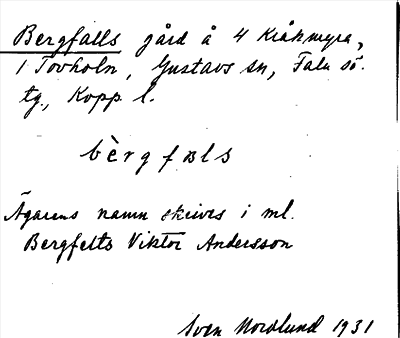 Bergfalls gård å 4 Kråkmyra,
1 Torholn, Gustavs sn, Falu sö.
tg., Kopp. l.
bèrgfals
Ägarens namn skrives i ml.
Bergfelts Viktor Andersson
Sven Nordlund 1931